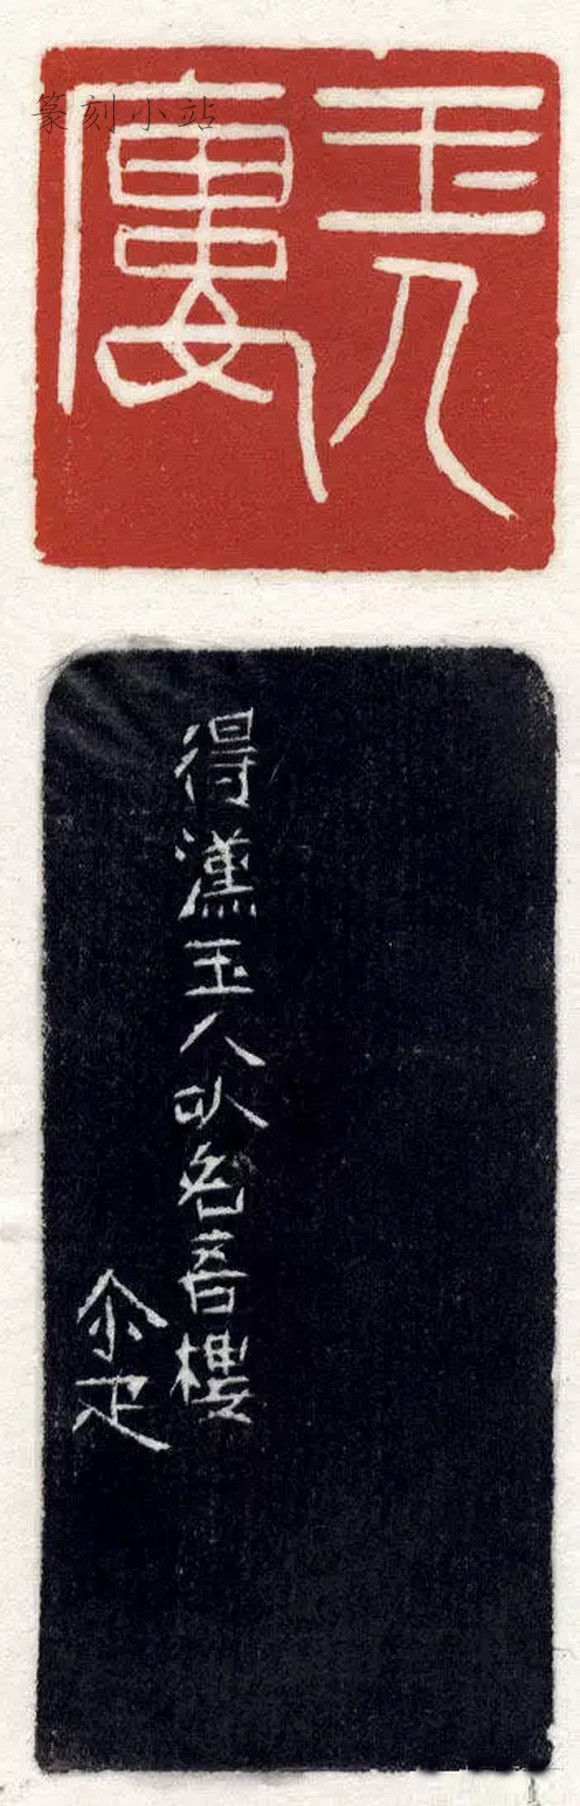 篆刻小站
玉人
廔
得漢玉人以名吾樓
尒疋